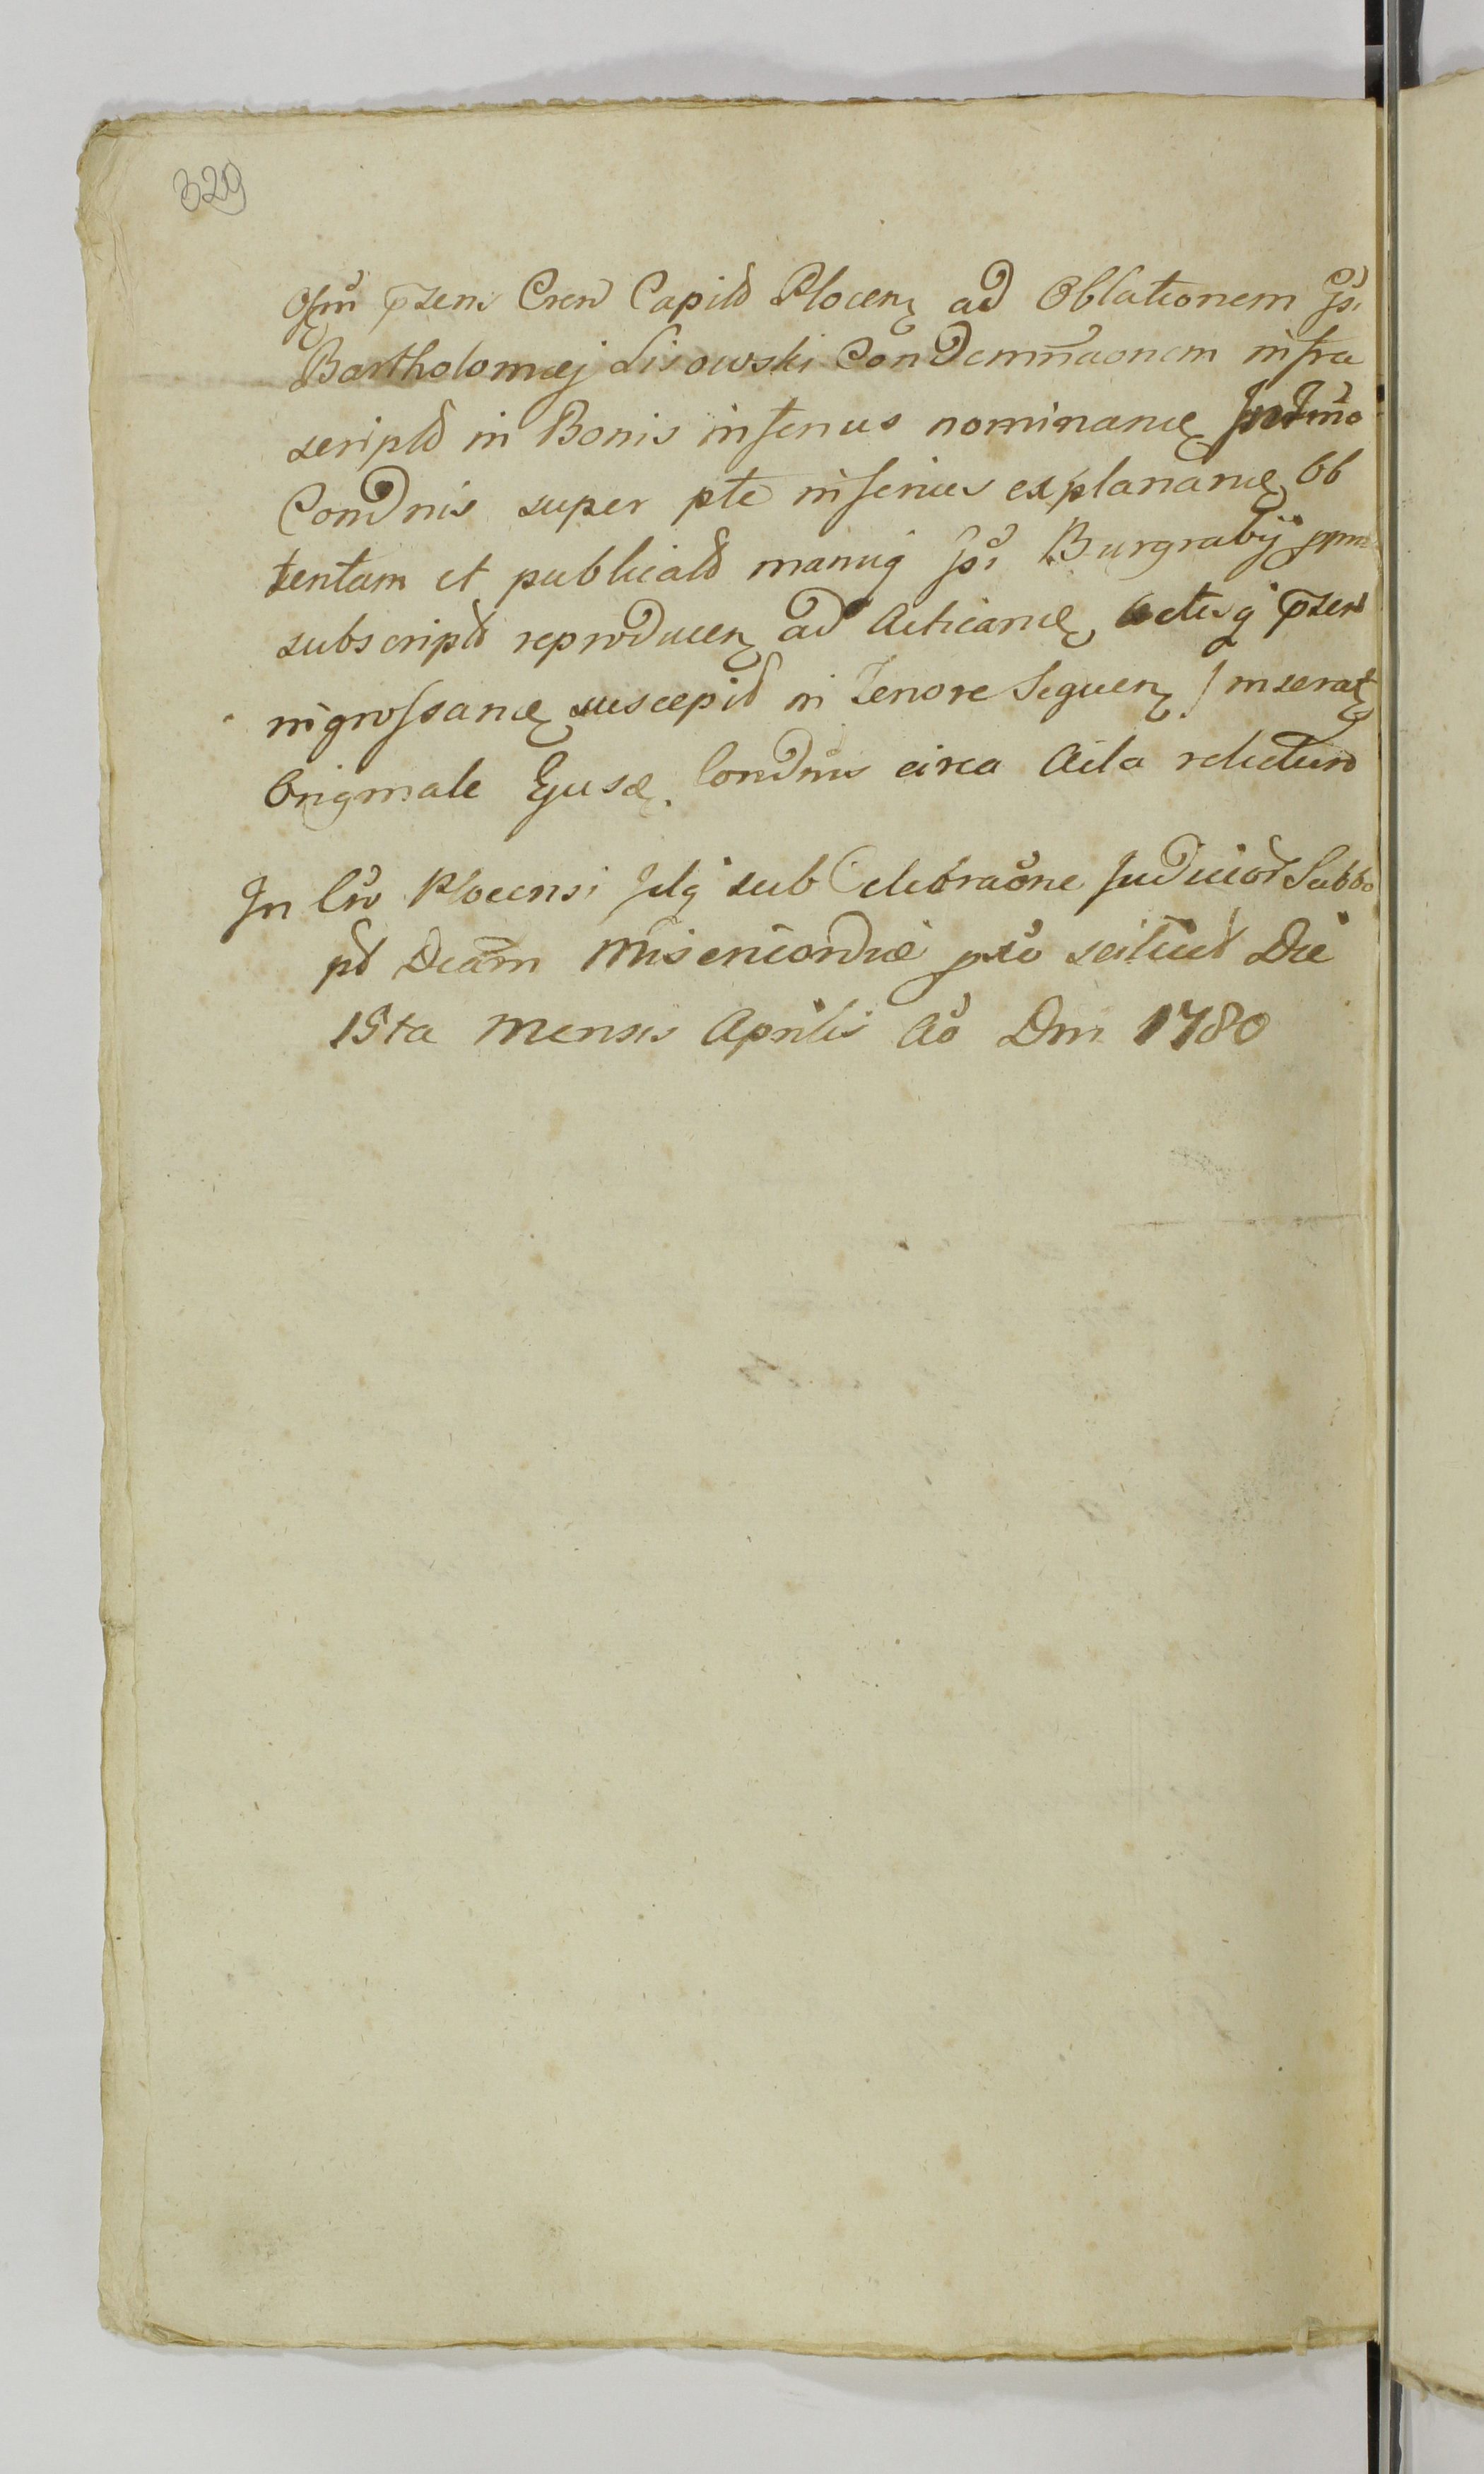 329
Offm pzens Cren Capitd Plocen ad Oblationem Gsi
Bartholomæj Lisowski Condemnaonem infra
scriptd in Bonis inferius nominand
Condnis super pte inferius explanand Ob
tentam et publicatd manuq Gsi Burgrabij
subscriptd reproducen ad Acticand actisq pzen
ingrossand suscepit in Tenore Sequen Inserat
Originale Ejusd Condnis circa Acta relictum
In Cro Plocensi Ido sub Celebraone Judicior Sabbo
pt Dcam Misericordiæ pxo scilicet Die
15ta Mensis Aprilis Ao Dm 1780